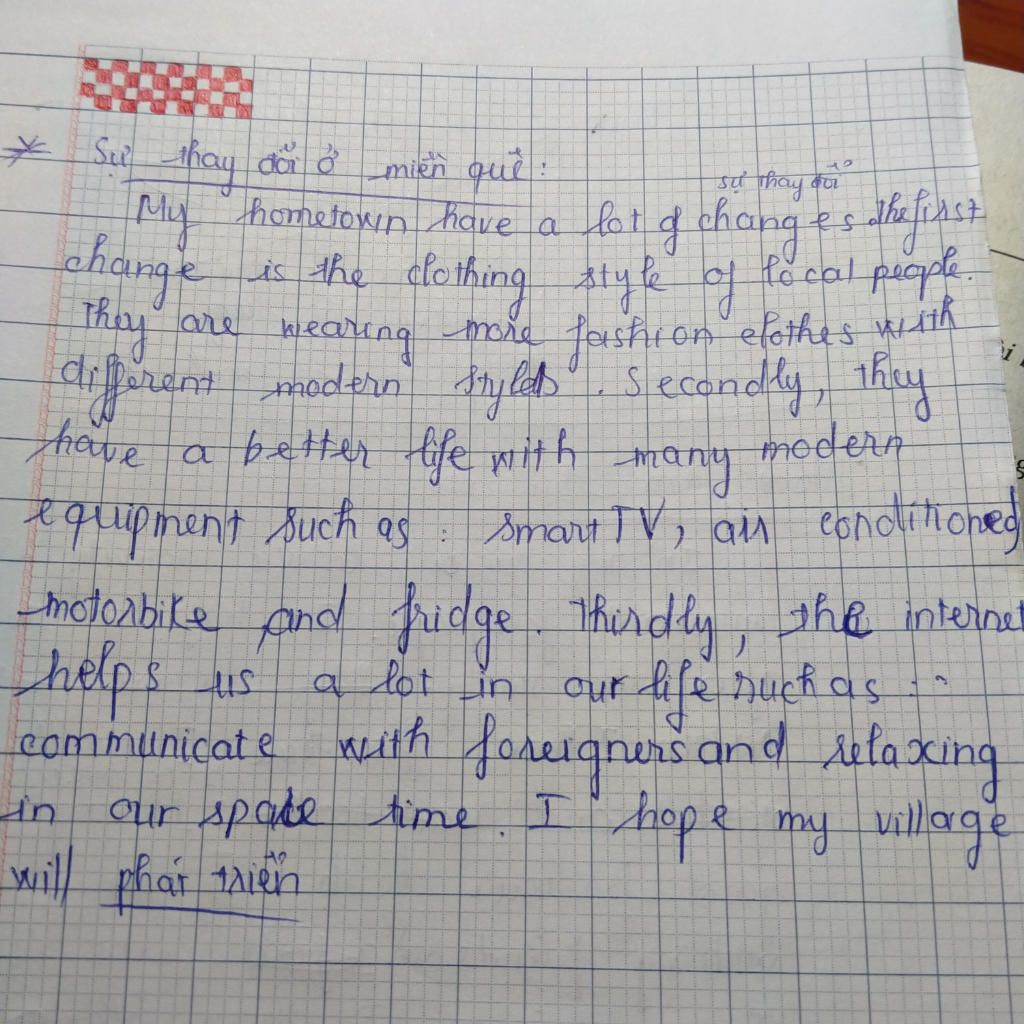 * Sự thay đổi ở miền quê:
sự thay đổi
My hometown have a lot of changes. The first
change is the clothing style of local people.
They are wearing more fashion clothes with
different modern styles. Secondly, they
have a better life with many modern
equipment such as: smart TV, air conditioned
motorbike and fridge. Thirdly, the internet
helps us a lot in our life such as:
communicate with foreigners and relaxing
in our spare time. I hope my village
will phát triển